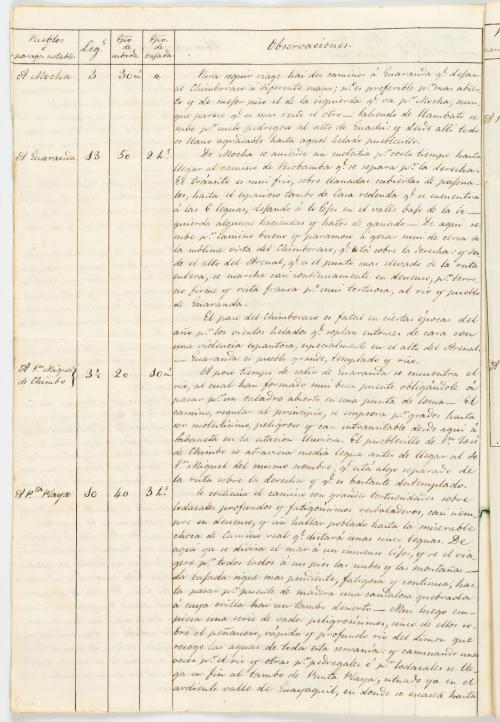 Pueblos ó parages notables
Leg.s
Tpo. de subida
Tpo. de bajada
Observaciones.
A Mocha 3 30m "
Para seguir viage hai dos caminos á Guaranda q.e dejan
al Chimborazo á diferente mano; p.o es preferible p.r mas abier-
to y de mejor piso el de la izquierda q.e va p.r Mocha, aun-
que parece q.e es mas recto el otro — Saliendo de Hambato se
sube p.r suelo pedregoso al alto de Guachi: y desde allí todo
es llano agradable hasta aquel helado pueblecillo.
A Guaranda 13 50 2h.s
De Mocha se asciende un molestia p.r corto tiempo hasta
llegar al camino de Riobamba q.e se separa p.r la derecha.
El tránsito es mui frio, sobre llanadas cubiertas de pajona-
les, hasta el espacioso tambo de Casa redonda q.e se encuentra
á las 6 leguas, dejando á lo lejos en el valle bajo de la iz-
quierda algunas haciendas y hatos de ganado — De aquí se
sube p.r camino bueno y paramoso á gozar mui de cerca de
la sublime vista del Chimborazo, q.e está sobre la derecha: y des-
de el alto del Arenal, q.e es el punto mas elevado de la ruta
entera, se marcha casi continuamente en descenso, p.r terre-
no firme y ruta franca p.o mui tortuosa, al rio y pueblo
de Guaranda.
El paso del Chimborazo es fatal en ciertas épocas del
año p.r los vientos helados q.e soplan entonces de cara con
una violencia espantosa, especialmente en el alto del Arenal.
— Guaranda es pueblo grande, templado y rico.
A S.n Miguel de Chimbo 3½ 20 10m
A poco tiempo de salir de Guaranda se encuentra el
rio, al cual han formado mui buen puente obligándole á
pasar p.r un taladro abierto en una punta de loma — El
camino, regular al principio, se empeora p.r grados hasta
ser molestísimo, peligroso y casi intransitable desde aquí á
Sabaneta en la estacion lluviosa. El pueblecillo de S.n José
de Chimbo se atraviesa media legua antes de llegar al de
S.n Miguel del mismo nombre, q.e está algo separado de
la ruta sobre la derecha y q.e es bastante destemplado.
A P.ta Playa 10 40 3h.s
Se continúa el camino con grandes tortuosidades sobre
lodazales profundos y fatigosísimos resbaladeros, casi siem-
pre en descenso, y sin hallar poblado hasta la miserable
choza de Camino real q.e distará unas cinco leguas. De
aquí ya se divisa el mar á un inmenso lejos, y ve el via-
gero p.r todos lados á sus pies las nubes y las montañas —
La bajada sigue mas pendiente, fatigosa y continua, has-
ta pasar p.r puente de madera una caudalosa quebrada
á cuya orilla hai un tambo desierto — Mui luego em-
pieza una serie de vados peligrosísimos, cinco de ellos so-
bre el peñascoso, rápido y profundo rio del Limon que
recoge las aguas de toda esta serranía: y caminando unas
veces p.r el rio y otras p.r pedregales ó p.r lodazales se lle-
ga en fin al tambo de Punta Playa, situado ya en el
ardiente valle de Guayaquil, en donde se escasea hasta